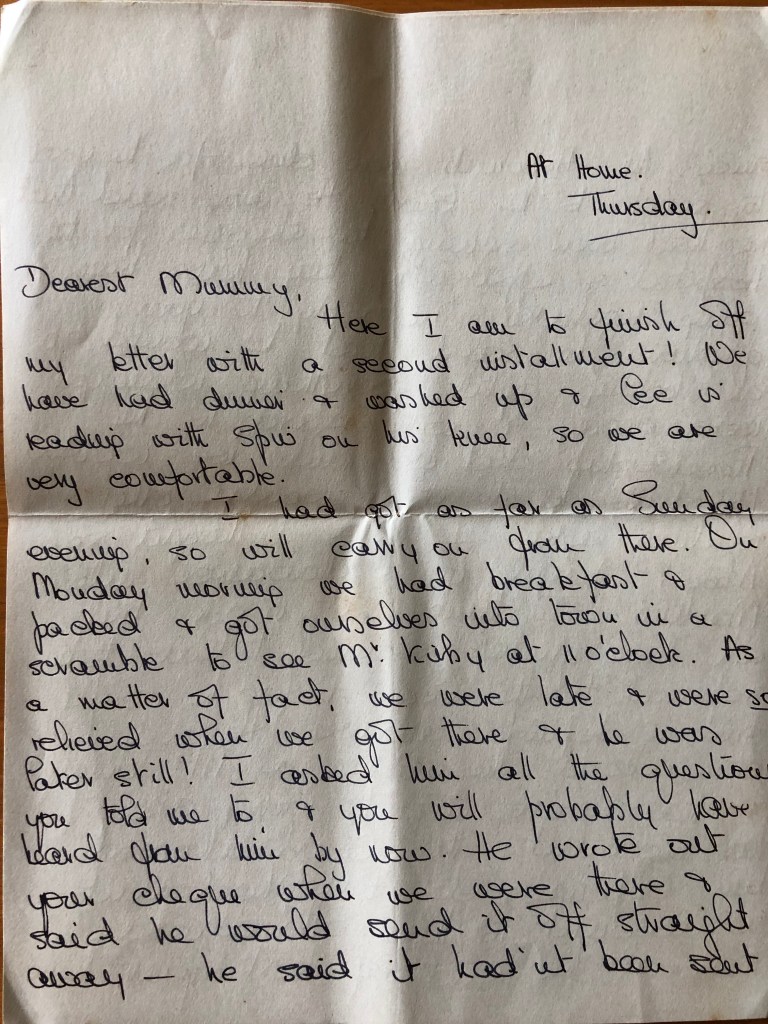 At Home.
Thursday.
Dearest Mummy,
Here I am to finish off
my letter with a second installment! We
have had dinner & washed up & Cee is
reading with Spis on his knee, so we are
very comfortable.
I had got as far as Sunday
evening, so will carry on from there. On
Monday morning we had breakfast &
packed & got ourselves into town in a
scramble to see Mr. Kirby at 11 o'clock. As
a matter of fact, we were late & were so
relieved when we got there & he was
later still! I asked him all the question
you told me to & you will probably have
heard from him by now. He wrote out
your cheque when we were there &
said he would send it off straight
away — he said it had'nt been sent